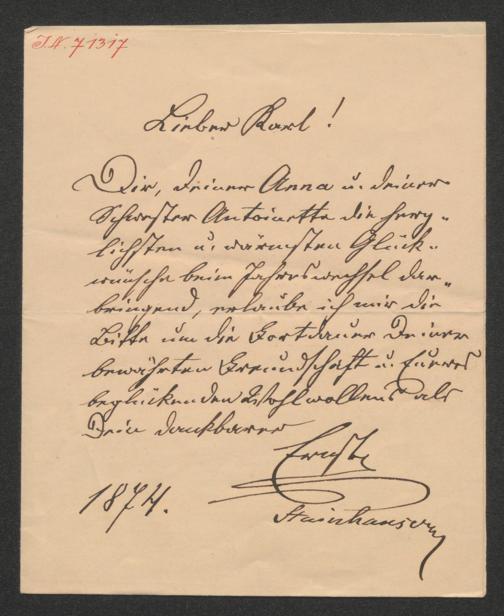 J.N. 71317
Lieber Karl!
Dir, deiner Anna u. deiner
Schwester Antoinette die herz-
lichsten u. wärmsten Glück-
wünsche beim Jahreswechsel dar-
bringend, erlaube ich mir die
Bitte um die Fortdauer Deiner
bewährten Freundschaft u. Eueres
beglückenden Wohlwollens als
Dein dankbarer
Ernst
1874.
Stainhauser